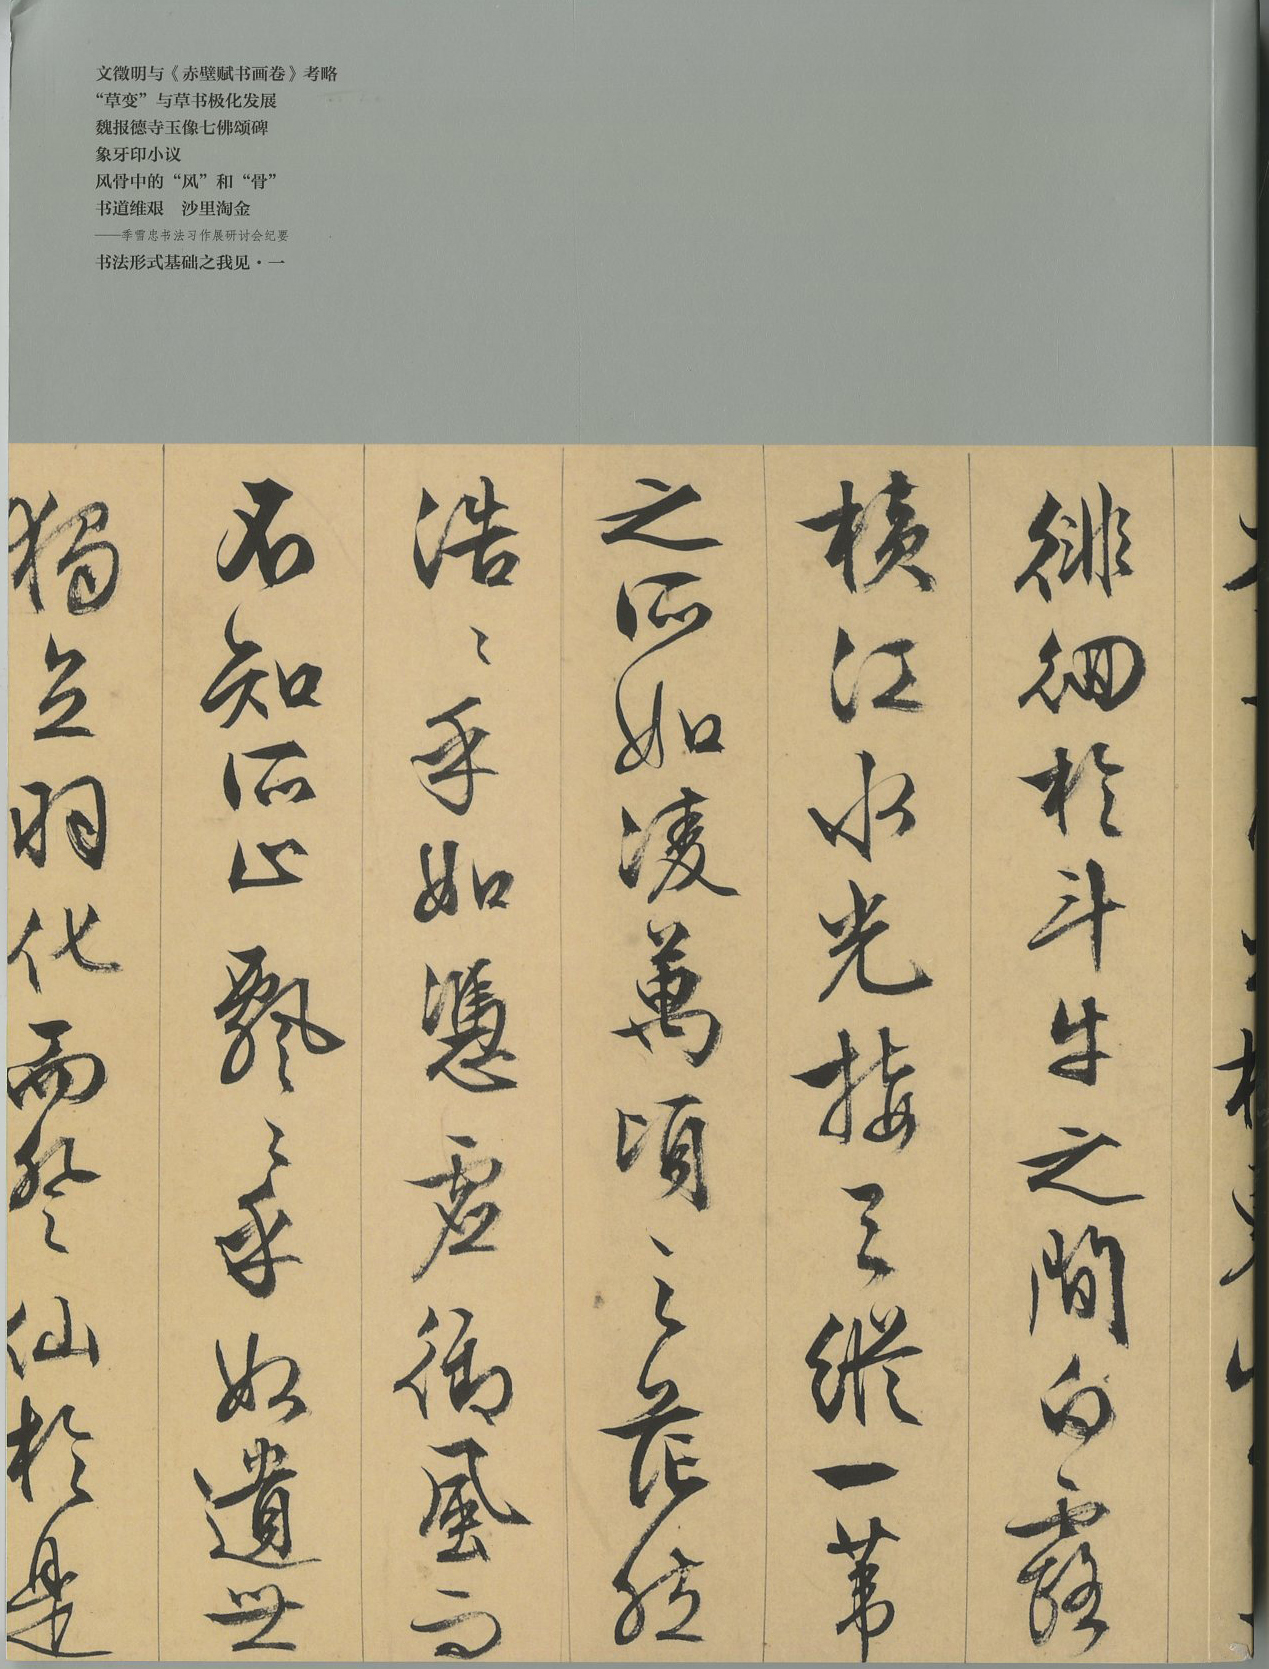 文徵明与《赤壁赋书画卷》考略
“草变”与草书极化发展
魏报德寺玉像七佛颂碑
象牙印小议
风骨中的“风”和“骨”
书道维艰　沙里淘金
——季雪忠书法习作展研讨会纪要
书法形式基础之我见·一
徘徊於斗牛之間白露
横江水光接天縱一葦
之所如凌萬頃之茫然
浩〻乎如憑虚御風而
不知所止飄〻乎如遺世
獨立羽化而登仙於是